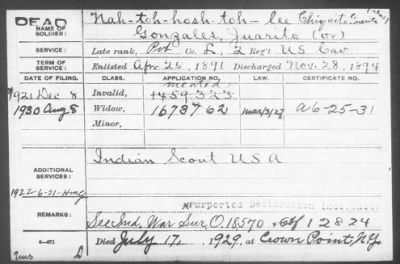 DEAD
NAME OF SOLDIER:
Nah-toh-hosh-toh-lee Chiquito
Gonzales, Juarito (or)
SERVICE:
Late rank, Pvt Co. L, 2 Reg't US Cav
TERM OF SERVICE:
Enlisted Apr. 25, 1891 Discharged Nov. 28, 1894
DATE OF FILING. CLASS. APPLICATION NO. LAW. CERTIFICATE NO.
1921 Dec 8 Invalid, 1459323
1930 Aug 8 Widow, 1673762 Mar/3/27 a6-25-31
Minor,
ADDITIONAL SERVICES:
Indian Scout USA
1922-6-21
REMARKS:
Purported Declaration
See Ind. War Sur. O. 18570 + Ctf 12824
Died July 17, 1929, at Crown Point, N.M.